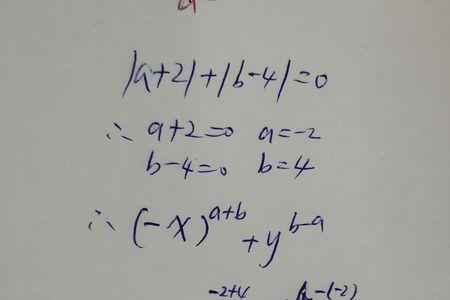 |a+2|+|b-4|=0
∴ a+2=0 a=-2
b-4=0 b=4
∴ (-x)^{a+b}+y^{b-a}
-2+4 4-(-2)